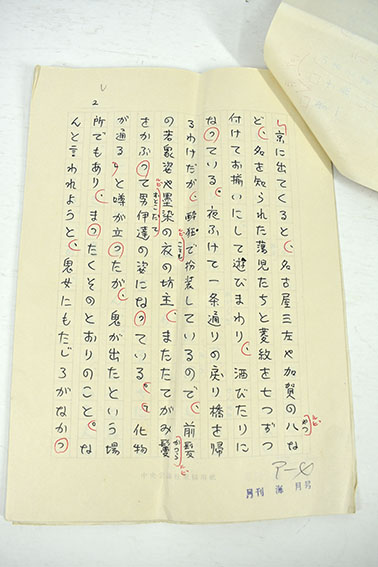 2
京に出てくると、名古屋三左や加賀の八な
やつ
ルビ
ど、名を知られた蕩児たちと菱紋を七つずつ
付けてお揃いにして遊びまわり、酒びたりに
なっている。夜ふけて一条通りの戻り橋を帰
るわけだが、酔狂で扮装しているので、前髪
の若衆姿や墨染の衣の坊主、またたてがみ鬘
かつら
ルビ
をかぶって男伊達の姿になっている。化物
おとこだて
ルビ
が通る、と噂が立ったが、鬼が出たという場
所でもあり、まったくそのとおりのこと。な
んと言われようと、鬼女にもたじろがなかっ
月刊 海 月号